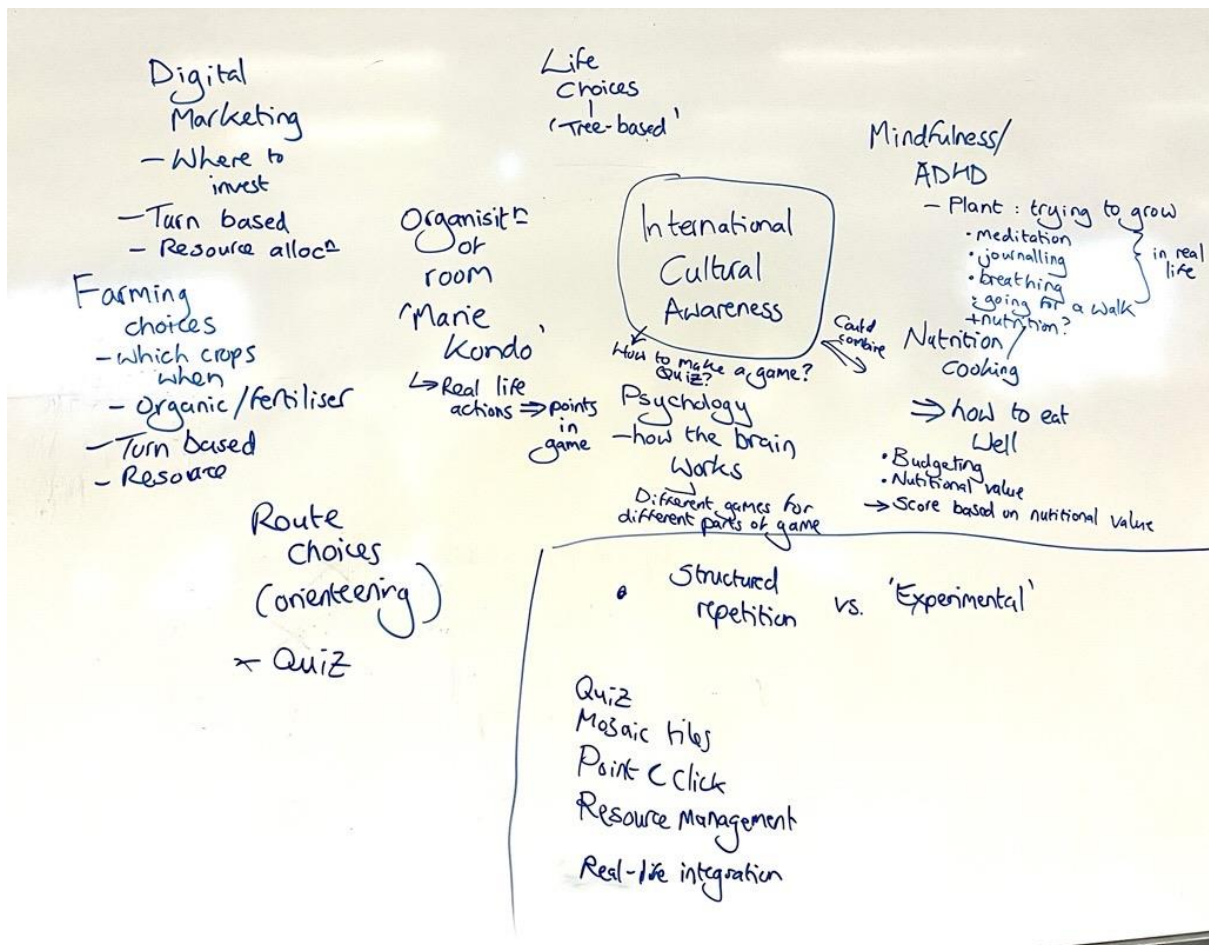 Digital
Marketing
- Where to
invest
- Turn based
- Resource allocⁿ
Farming
choices
- which crops
when
- Organic/fertiliser
- Turn based
- Resource
Route
choices
(orienteering)
Quiz
Life
choices
'Tree-based'
Organisitⁿ
of
room
'Marie
Kondo'
↳ Real life
actions ⇒ points
in
game
International
Cultural
Awareness
How to make a game?
Quiz?
Could
combine
Psychology
- how the brain
works
Different games for
different parts of game
Mindfulness/
ADHD
- Plant : trying to grow
• meditation
• journalling
• breathing
• going for a walk
in real
life
+nutrition?
Nutrition/
cooking
⇒ how to eat
Well
• Budgeting
• Nutitional value
→ Score based on nutitional value
• Structured
repetition
vs. 'Experimental'
Quiz
Mosaic tiles
Point C Click
Resource Management
Real-life integration